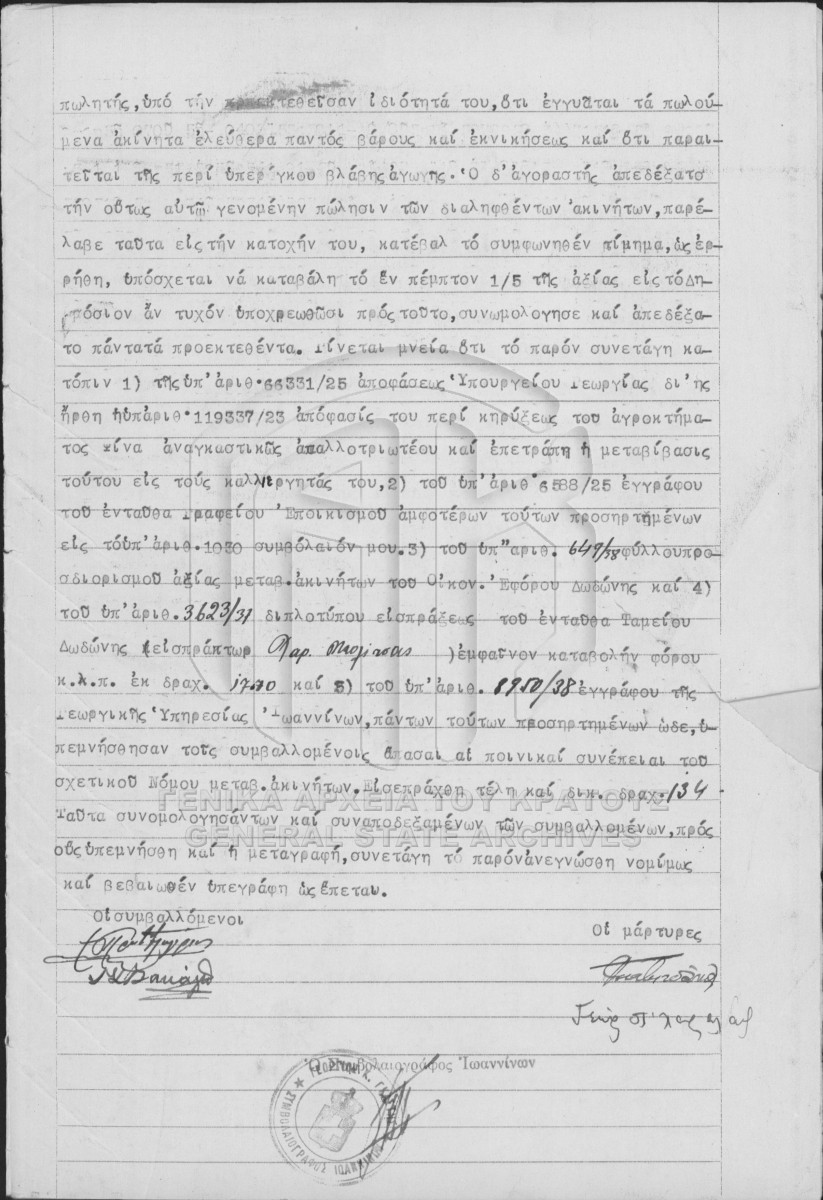 πωλητής,ὑπό τήν προεκτεθεῖσαν ἰδιότητά του,ὅτι ἐγγυᾶται τά πωλού-
μενα ἀκίνητα ἐλεύθερα παντός βάρους καί ἐκνικήσεως καί ὅτι παραι-
τεῖται τῆς περί ὑπερόγκου βλάβης ἀγωγῆς.Ὁ δ'ἀγοραστής ἀπεδέξατο
τήν οὕτως αὐτῷ γενομένην πώλησιν τῶν διαληφθέντων ἀκινήτων,παρέ-
λαβε ταῦτα εἰς τήν κατοχήν του, κατέβαλ τό συμφωνηθέν τίμημα,ὡς ἐρ-
ρήθη, ὑπόσχεται νά καταβάλη τό ἕν πέμπτον 1/5 τῆς ἀξίας εἰς τό Δη-
μόσιον ἄν τυχόν ὑποχρεωθῶσι πρός τοῦτο,συνωμολόγησε καί ἀπεδέξα-
το πάντα τά προεκτεθέντα. Γίνεται μνεία ὅτι τό παρόν συνετάγη κα-
τόπιν 1) τῆς ὑπ'ἀριθ.66331/25 ἀποφάσεως Ὑπουργείου Γεωργίας δι'ἧς
ἤρθη ἡ ὑπἀριθ.119337/23 ἀπόφασίς του περί κηρύξεως του ἀγροκτήμα-
τος ἀναγκαστικῶς ἀπαλλοτριωτέου καί ἐπετράπη ἡ μεταβίβασις
τούτου εἰς τούς καλλιεργητάς του,2) τοῦ ὑπ'ἀριθ.6588/25 ἐγγράφου
τοῦ ἐνταῦθα Γραφείου Ἐποικισμοῦ ἀμφοτέρων τούτων προσηρτημένων
εἰς τό ὑπ'ἀριθ.1030 συμβόλαιόν μου.3) τοῦ ὑπ" ἀριθ. 649/38 φύλλου προ-
σδιορισμοῦ ἀξίας μεταβ.ἀκινήτων τοῦ Οἰκον. Ἐφόρου Δωδώνης καί 4)
τοῦ ὑπ'ἀριθ.3623/31 διπλοτύπου εἰσπράξεως τοῦ ἐνταῦθα Ταμείου
Δωδώνης (εἰσπράκτωρ Χαρ. )ἐμφαῖνον καταβολήν φόρου
κ.λ.π. ἐκ δραχ. 1770 καί 5) τοῦ ὑπ'ἀριθ. 8950/38 ἐγγράφου τῆς
Γεωργικῆς Ὑπηρεσίας Ἰωαννίνων,πάντων τούτων προσηρτημένων ὧδε,ὑ-
πεμνήσθησαν τοῖς συμβαλλομένοις ἅπασαι αἱ ποινικαί συνέπειαι τοῦ
σχετικοῦ Νόμου μεταβ.ἀκινήτων.Εἰσεπράχθη τέλη καί δικ. δραχ.134
Ταῦτα συνομολογησάντων καί συναποδεξαμένων τῶν συμβαλλομένων,πρός
οὕς ὑπεμνήσθη καί ἡ μεταγραφή,συνετάγη τό παρόν ἀνεγνώσθη νομίμως
καί βεβαιωθέν ὑπεγράφη ὡς ἕπεται.
Οἱ συμβαλλόμενοι
Οἱ μάρτυρες
Ὁ Συμβολαιογράφος Ἰωαννίνων
ΣΥΜΒΟΛΑΙΟΓΡΑΦΟΣ ΙΩΑΝΝΙΝΩΝ
ΓΕΝΙΚΑ ΑΡΧΕΙΑ ΤΟΥ ΚΡΑΤΟΥΣ
GENERAL STATE ARCHIVES